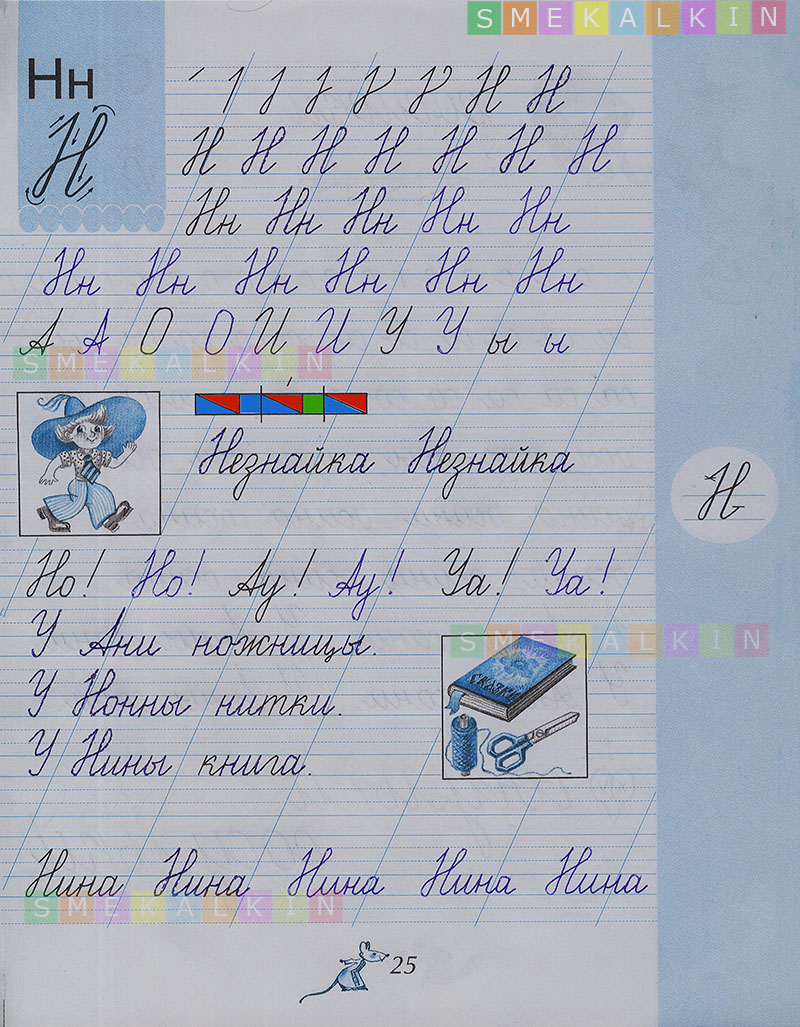 SMEKALKIN
Нн
Н
Н Н
Н Н Н Н Н Н Н
Нн Нн Нн Нн Нн
Нн Нн Нн Нн Нн Нн
А А О О И И У У ы ы
SMEKALKIN
Незнайка Незнайка
Н
Но! Но! Ау! Ау! Уа! Уа!
У Ани ножницы.
SMEKALKIN
Сказки
У Нонны нитки.
У Нины книга.
Нина Нина Нина Нина Нина
SMEKALKIN
25